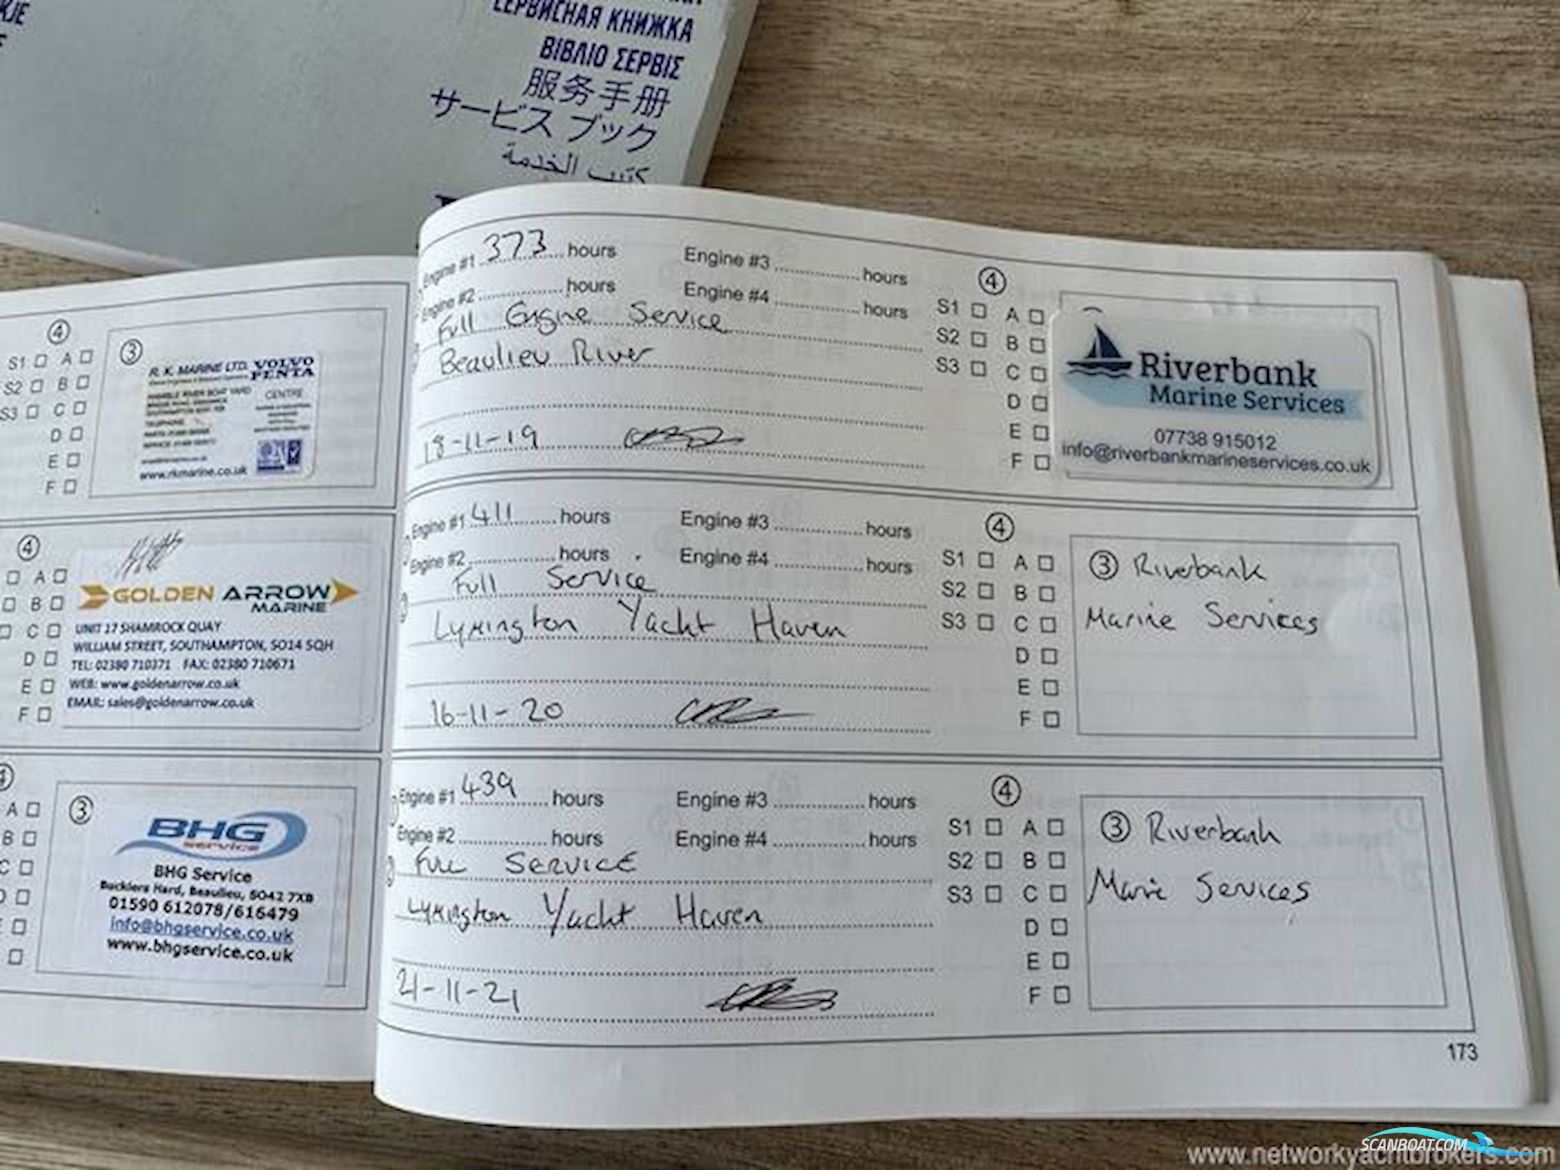 СЕРВИСНАЯ КНИЖКА
ΒΙΒΛΙΟ ΣΕΡΒΙΣ
服务手册
サービス ブック
كتيب الخدمة
④
S1 A
S2 B
S3 C
D
E
F
③
R. K. MARINE LTD. VOLVO PENTA
HAMBLE RIVER BOAT YARD
CENTRE
www.rkmarine.co.uk
④
A
B
C
D
E
F
GOLDEN ARROW
MARINE
UNIT 17 SHAMROCK QUAY
WILLIAM STREET, SOUTHAMPTON, SO14 5QH
TEL: 02380 710371 FAX: 02380 710671
WEB: www.goldenarrow.co.uk
EMAIL: sales@goldenarrow.co.uk
A
B
③
BHG
service
BHG Service
Bucklers Hard, Beaulieu, SO42 7XB
01590 612078/616479
info@bhgservice.co.uk
www.bhgservice.co.uk
Engine #1 373 hours Engine #3 hours
Engine #2 hours Engine #4 hours
Full Engine Service
Beaulieu River
18-11-19
④
S1 A
S2 B
S3 C
D
E
F
Riverbank
Marine Services
07738 915012
info@riverbankmarineservices.co.uk
Engine #1 411 hours Engine #3 hours
Engine #2 hours Engine #4 hours
Full Service
Lymington Yacht Haven
16-11-20
④
S1 A
S2 B
S3 C
D
E
F
③ Riverbank
Marine Services
Engine #1 439 hours Engine #3 hours
Engine #2 hours Engine #4 hours
Full Service
Lymington Yacht Haven
21-11-21
④
S1 A
S2 B
S3 C
D
E
F
③ Riverbank
Marine Services
173
SCANBOAT.COM
www.networkyachtbrokers.com